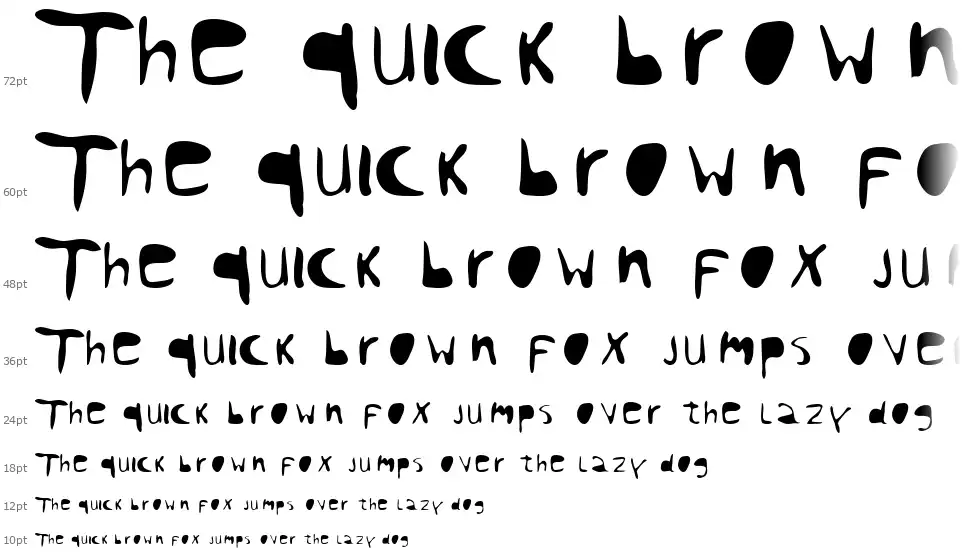 72pt The quick brown
60pt The quick brown fo
48pt The quick brown fox ju
36pt The quick brown fox jumps over
24pt The quick brown fox jumps over the lazy dog
18pt The quick brown fox jumps over the lazy dog
12pt The quick brown fox jumps over the lazy dog
10pt The quick brown fox jumps over the lazy dog